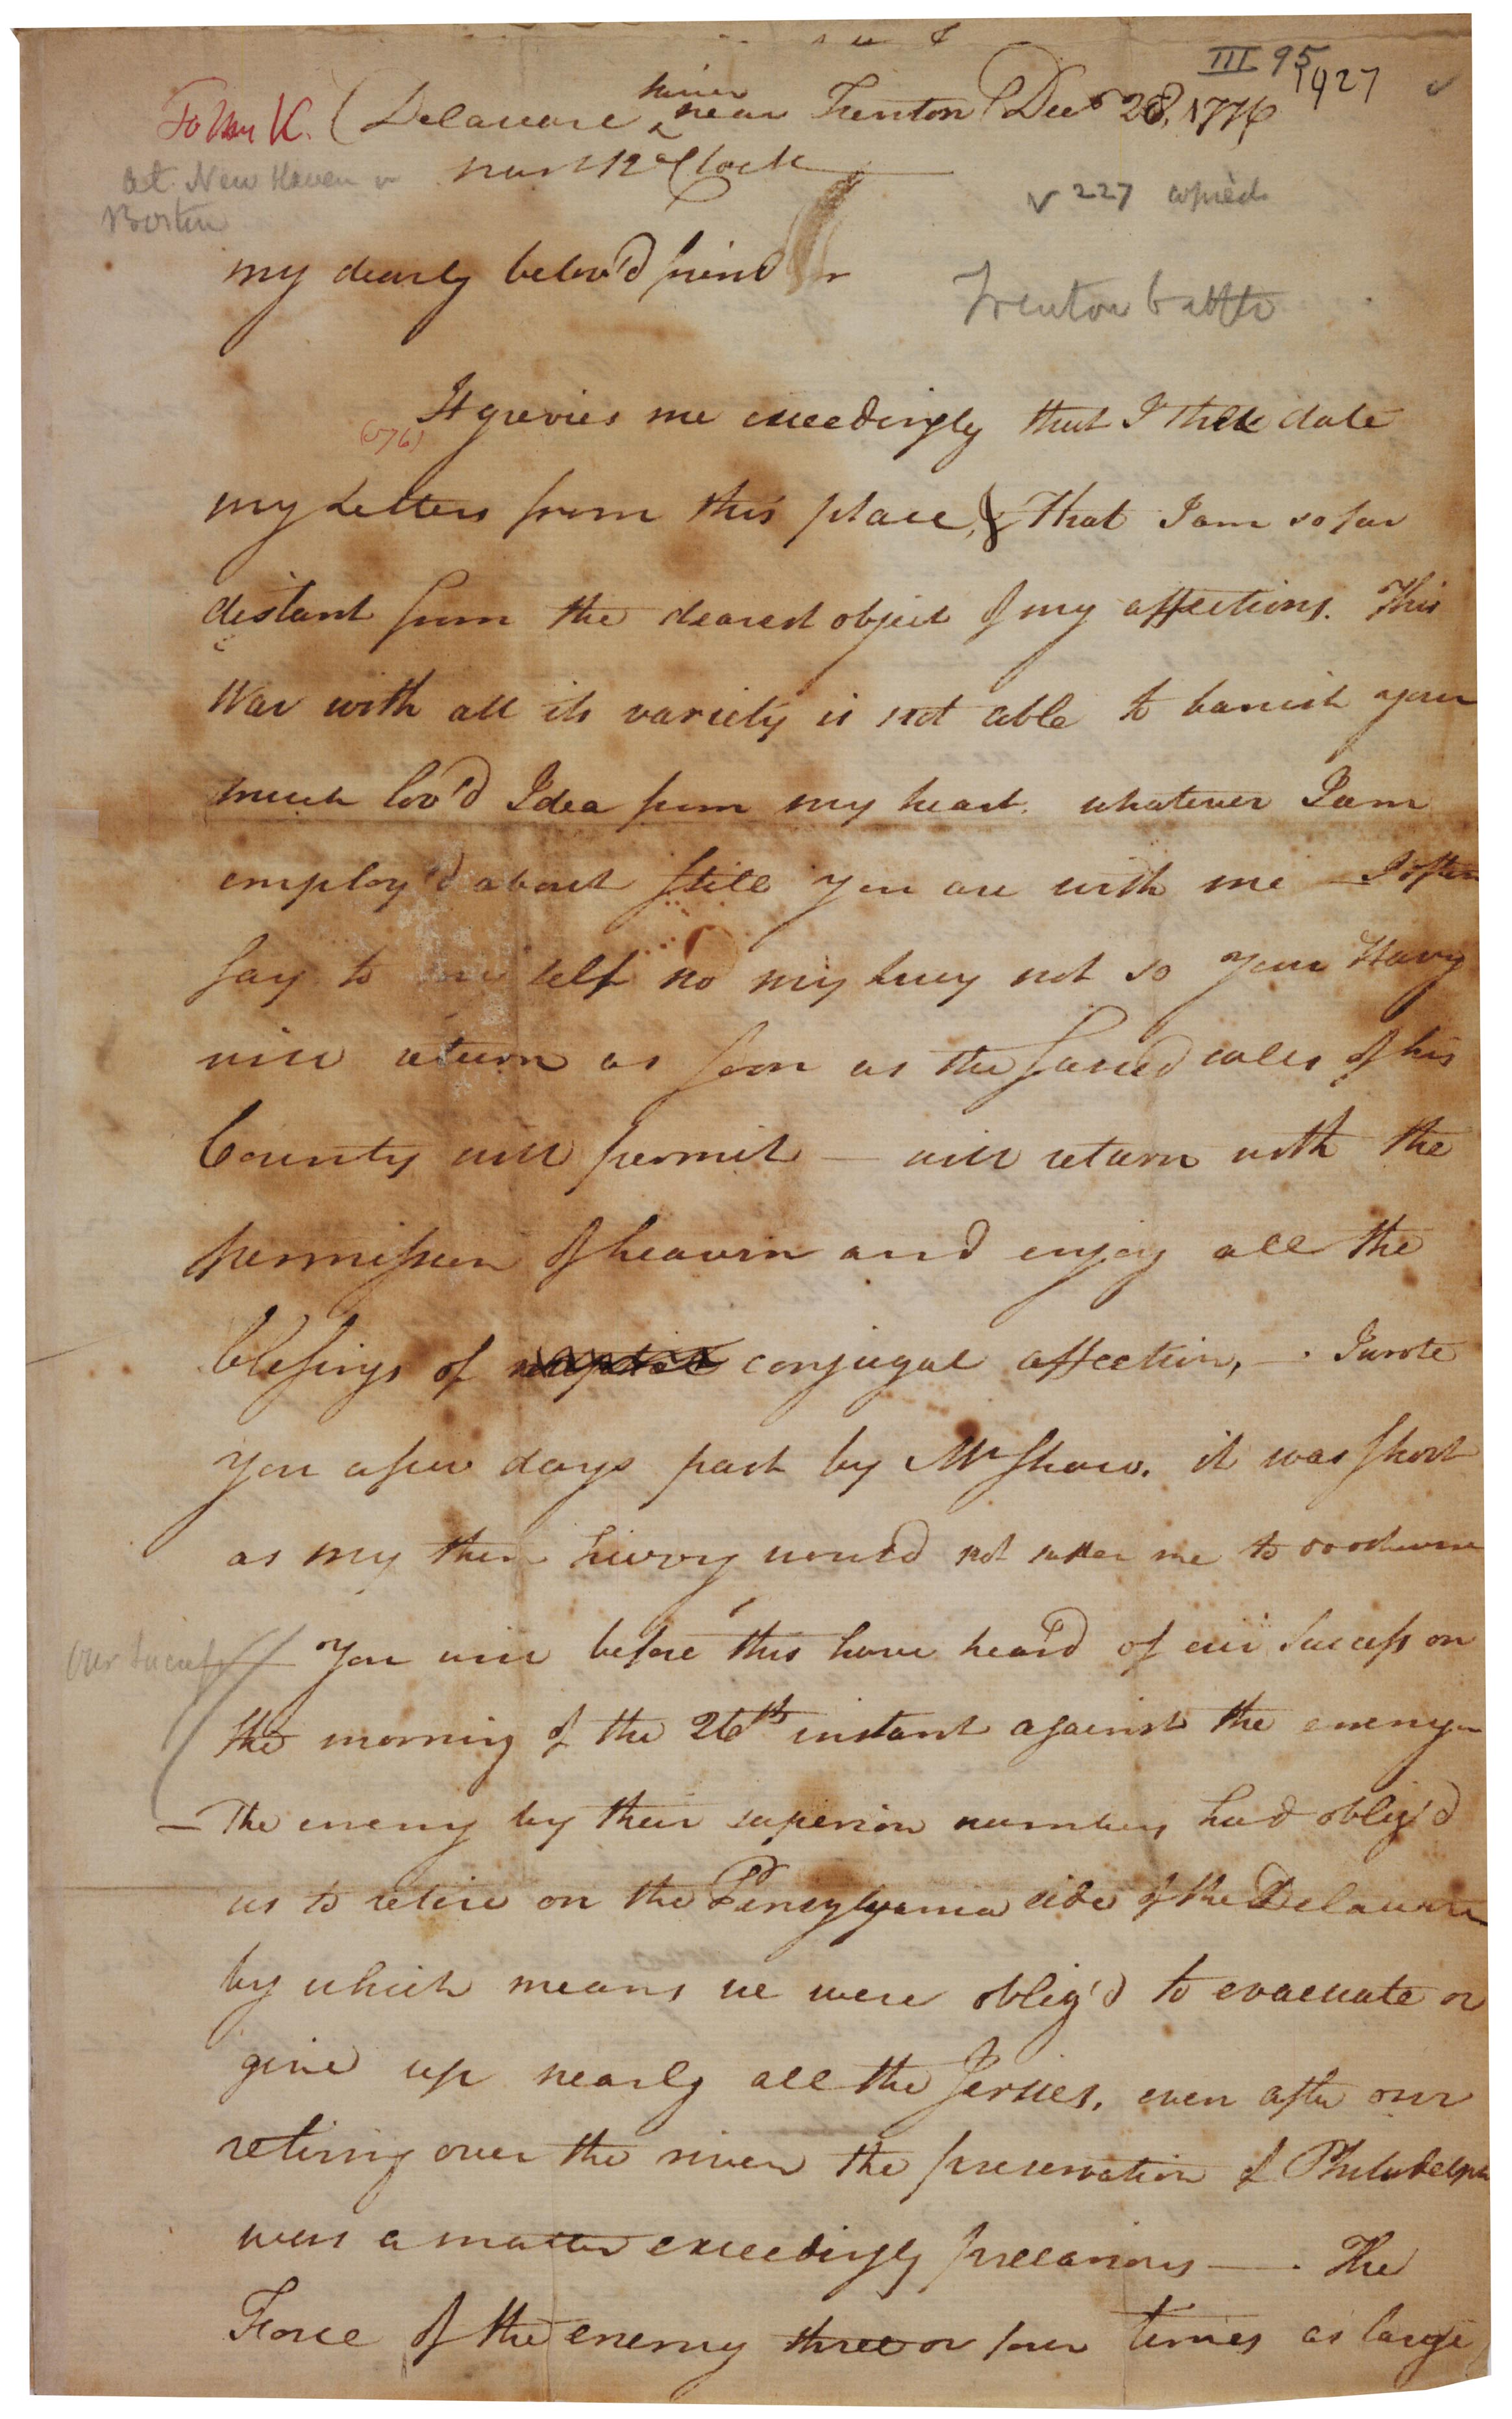 III 95
1927
To Mrs K. (Delaware river near Trenton) Decr 28, 1776
near 12 oClock
at New Haven or
Boston
v 227 copied
my dearly belov'd friend
Trenton battle
It grevies me exceedingly that I still date
(576)
my Letters from this place, & that I am so far
distant from the dearest object of my affections. This
War with all its variety is not able to banish your
much lov'd Idea from my heart. whatever I am
employ'd about still you are with me — I often
say to my self no my Lucy not so your Harry
will return as soon as the sacred calls of his
Country will permit — will return with the
permission of heaven and enjoy all the
blessings of conjugal affection, —. I wrote
you a few days past by Mr Shaw. it was short
as my then hurry would not suffer me to
our success
You will before this have heard of our success on
the morning of the 26th instant against the enemy
— The enemy by their superior numbers had oblig'd
us to retire on the Pensylvania side of the Delaware
by which means we were oblig'd to evacuate or
give up nearly all the Jersies. even after our
retiring over the river the preservation of Philadelphia
was a matter exceedingly precarious —. The
Force of the enemy three or four times as large